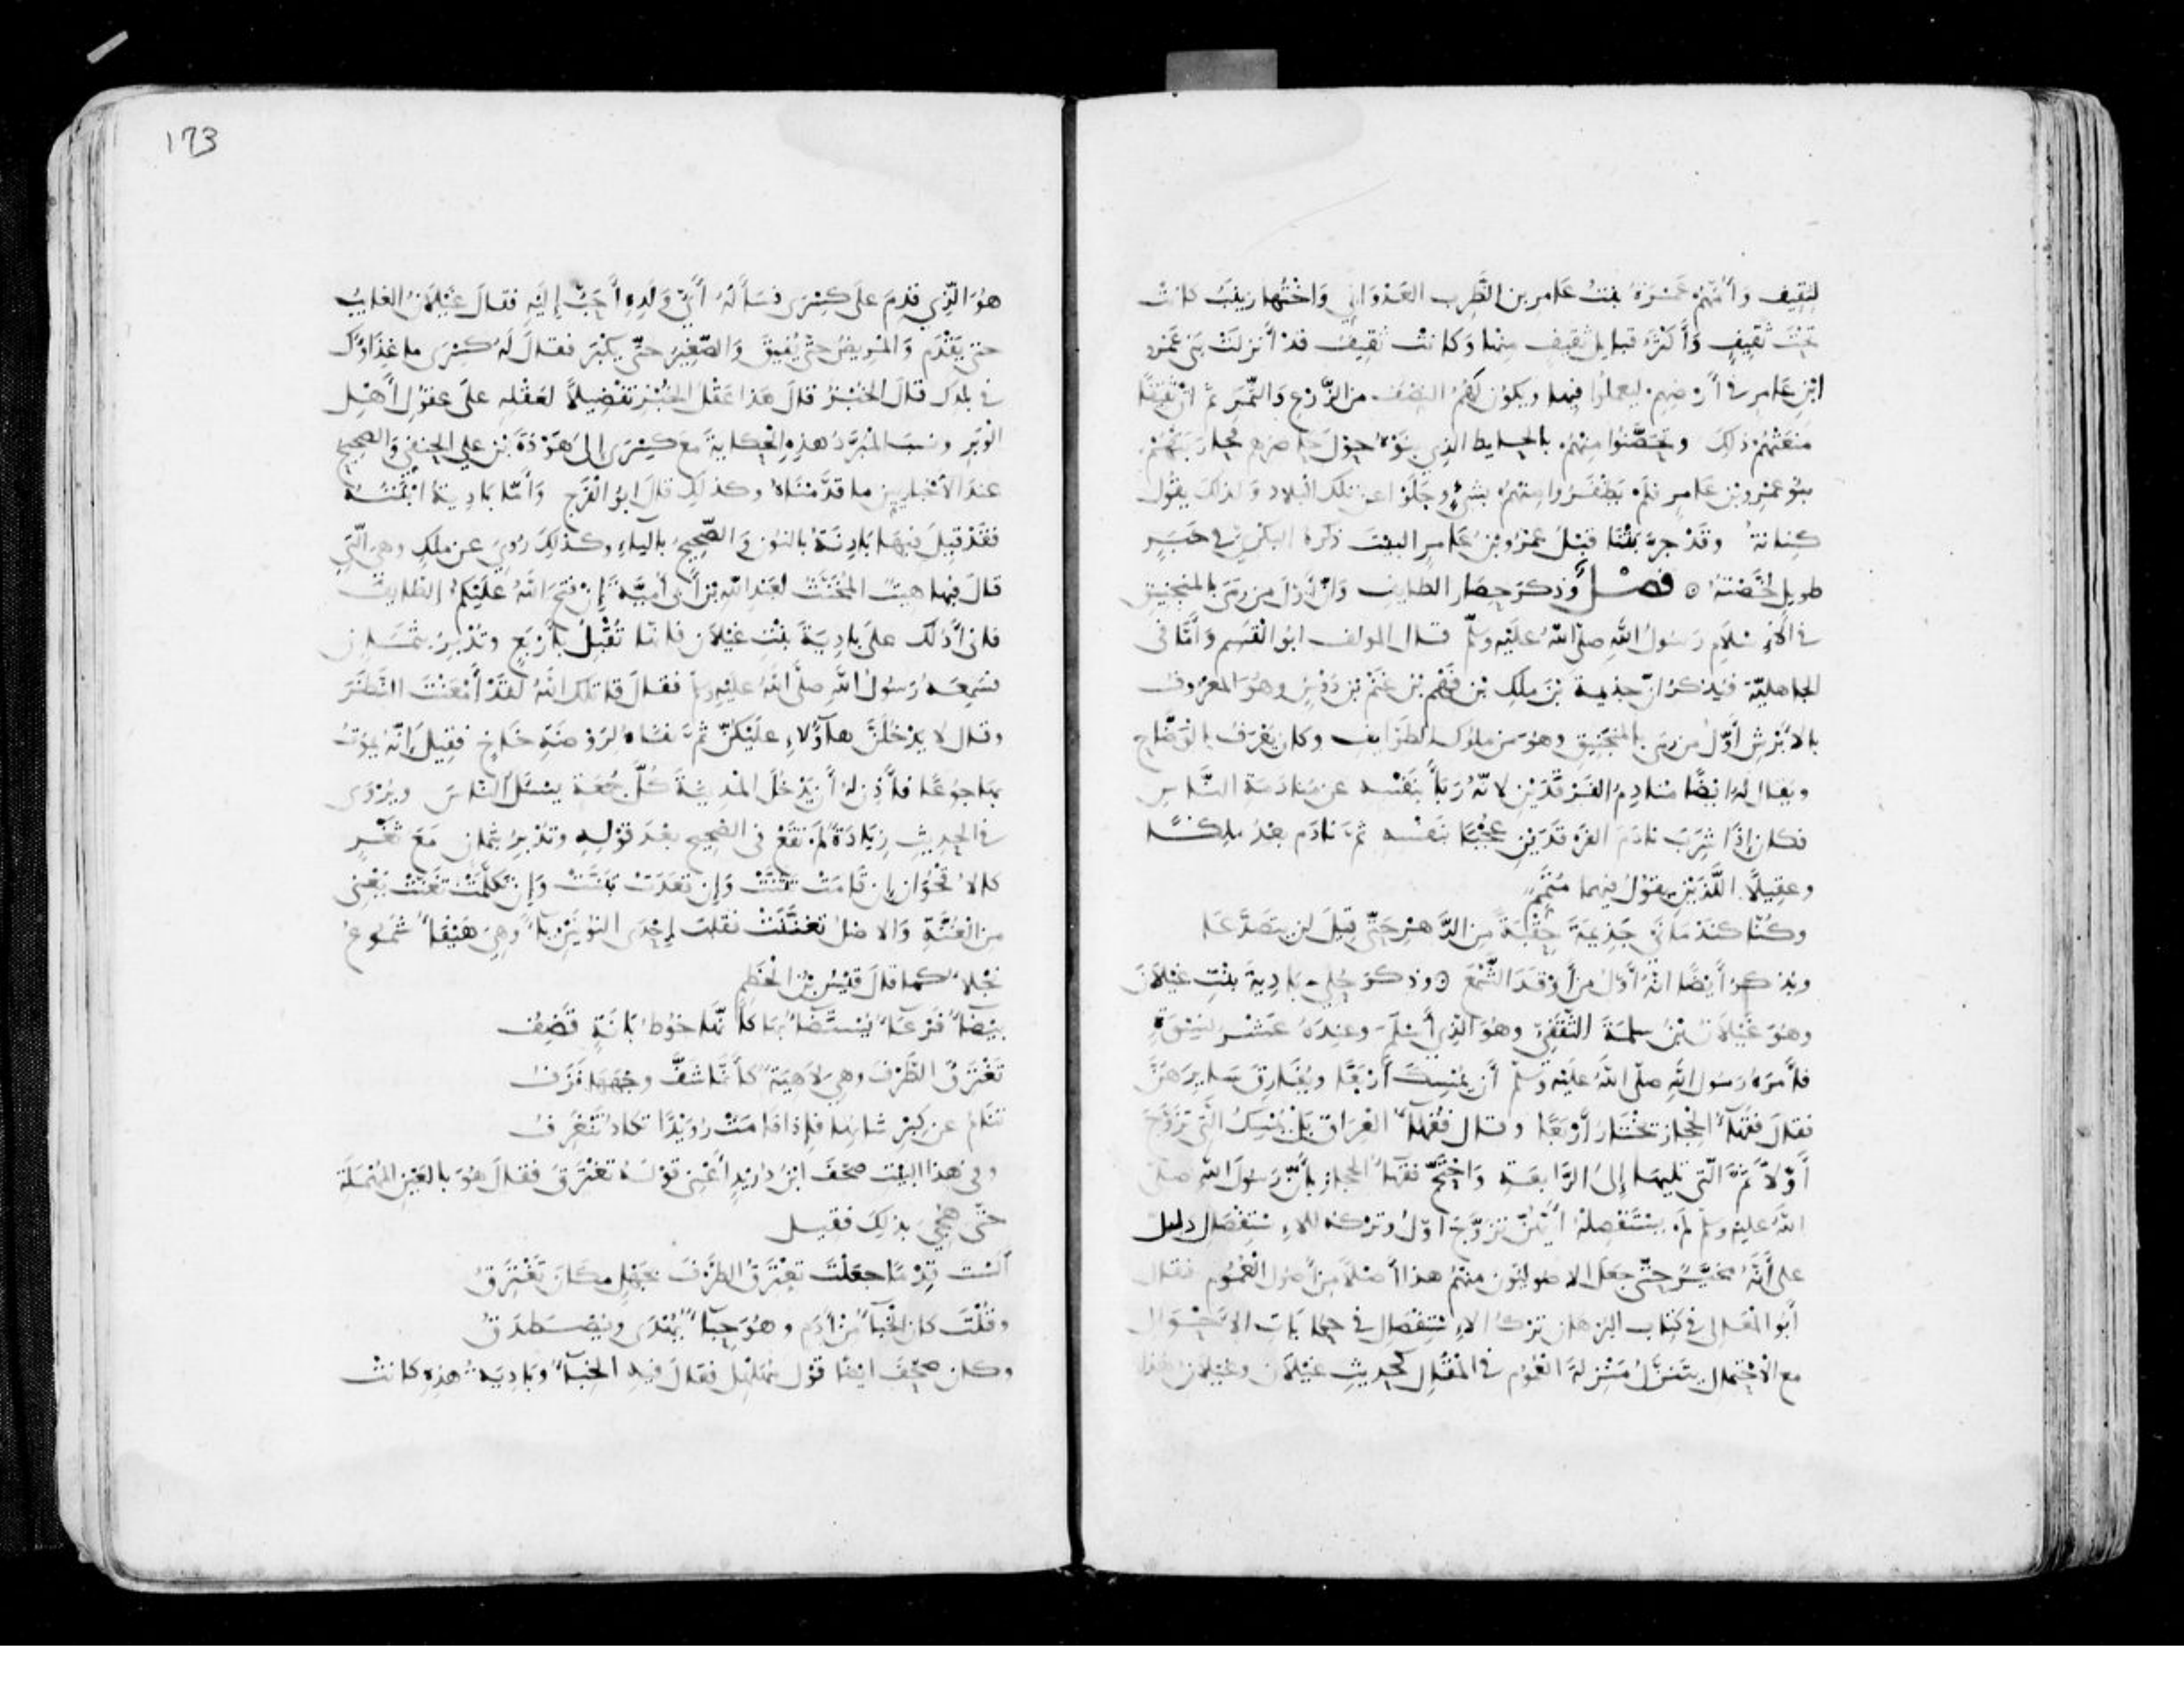 لثقيف وَأُمُّهُمْ عَمْرَةُ بنتُ عَامر بن الظَّرِب العَدْوَاني وَاختُها زينبُ كانتْ
تحْتَ ثقيفٍ وَأَكْثَرُ قبايل ثقيفٍ منها وَكانتْ ثقيفُ قدْ أنزلتْ بَني عَمْرو
ابْنِ عَامرٍ في أرْضِهِم ليعملُوا فيها ويكونَ لَهُمُ النِّصْفُ من الزَّرْعِ وَالثَّمَر ثمّ انّ ثقيفًا
منعَتْهُمْ ذلكَ وتحصَّنُوا منهُمْ بالحايط الذِي بنَوْهُ حوْلَ حَاضرهم فحَارَبتهُمْ
بنُو عَمْرو بن عَامرٍ فلَم يَظْفَرُوا منهُمْ بشَيْءٍ وجَلَوْا عن تلك البلاد وَلذلكَ يقُول
كِنانةُ وقدْ جرّبَتْنا قبْلُ عَمْرُو بنُ عَامرٍ البيت ذكرهُ البكْريّ في خَبَرٍ
طويلٍ لخَّصْتهُ ۞ فصْل وَذكرَ حِصَار الطايف وَانَّ أوّلَ مَن رَمَى بالمنجنيق
في الإِسْلام رَسُولُ اللهِ صلّى اللهُ عليْه وَسلّم قال المولف ابوُ القسَم وَأمَّا في
الجاهليّة فيُذكرُ انّ جذيمة بنَ ملِكِ بن فهْم بن غنْم بن دَوْسٍ وهُوَ المعرُوفُ
بالأَبْرشِ أوّلُ من رمَى بالمنْجَنيق وهُوَ من ملوكِ الطوَايف وكان يُعْرَفُ بالوَضَّاحِ
ويقالُ لهُ ايْضًا مُنادِمُ الفَرْقَدَيْنِ لانّهُ رَبَأَ بنَفْسه عن مُنادَمَة النَّاسِ
فكان إذَا شرِبَ نادَمَ الفَرْقَدَيْنِ عُجْبًا بنَفْسه ثمّ نادَم بعْدُ ملِكًا
وعقيلًا اللَّذَيْنِ يقولُ فيهما مُتَمِّمٌ
وكُنّا كنَدْمَانَيْ جَذِيمَةَ حِقْبَةً مِنَ الدَّهْرِ حَتّى قيلَ لن يتَصَدَّعَا
ويُذكرُ أيْضًا انّهُ أوّلُ مَن أوْقَدَ الشَّمْعَ ۞ وذكرَ حُليَّ بَادِيةَ بنْتِ غيْلَانَ
وهُوَ غَيْلَانُ بْنُ سلَمَةَ الثّقَفِيّ وهُوَ الذِي أسْلَمَ وعِندَهُ عَشْرُ نِسْوَةٍ
فأَمرَهُ رَسُول اللهِ صلّى اللهُ عليْه وَسلّم أن يُمْسِكَ أرْبَعًا ويُفَارِقَ سَايِرَهُنّ
فقالَ فقَهَآءُ الحِجَاز تخْتَارُ أرْبعًا وقال فُقهَآءُ العِرَاقِ بَلْ يُمْسِكُ الّتِي تزَوَّجَ
أوّلًا ثمَّ الّتي تليهَا إلى الرَّابعَةِ وَاحْتَجَّ فقهَآءُ الحجاز بأنّ رَسُولَ اللهِ صلّى
اللهُ عليْه وسلّم لمْ يسْتَفْصِلهُ أيّتُهُنّ تزَوَّجَ اوّلُ وترْكُهُ للاِسْتِفْصَال دليل
على أنَّهُ مُخَيَّرٌ حتّى جعَلَ الاصُوليُّون منهُمْ هذا أصْلًا مِن أصُولِ العُمُوم فقال
أبُو المعَالي في كتَاب البُرْهان ترْكُ الاِسْتِفْصَال في حِكايَاتِ الاَحْوَال
مع الاِحْتِمال يتنزّلُ مَنْزِلةَ العُمُوم في المقَال كحَدِيثِ غيْلَان وغيْلَانُ هذا

173
هُوَ الّذِي قدِمَ على كِسْرَى فسَألهُ أيُّ وَلَدِهِ أَحَبُّ إليْهِ فقالَ غيْلَانُ الغايبُ
حتى يَقْدَم وَالمريضُ حتّى يُفيقَ وَالصّغِيرُ حتّى يكْبَرَ فقالَ لهُ كِسْرَى ما غِذَاؤُكَ
في بلدِكَ قالَ الخُبْزُ قالَ هَذا عَقْلُ الخُبْزِ تفْضِيلًا لعَقْلِهِ على عقُولِ أهْلِ
الوَبَرِ ونسَبَ المُبَرَّدُ هذِهِ الحِكايةَ مَعَ كِسْرَى إلى هَوْذةَ بْنِ علي الحنفيّ وَالصحيحُ
عندَ الأخبَاريّينَ ما قدَّمْنَاهُ وكذلِك قال ابوُ الفَرَجِ وَأمّا بَادِيةُ ابْنَتُهُ
فقَدْ قيلَ فيهَا بَادِنَةُ بالنُونِ وَالصّحِيحُ بالياءِ وكذلِكَ رُوِيَ عن ملِكٍ وهي الّتِي
قالَ فيها هيتٌ المُخَنّثُ لعَبْدِ اللهِ بن أبي أمَيّةَ إِنْ فتَحَ اللهُ عَليْكمُ الطايفَ
فاني أدُلّكَ على بادِيةَ بنْتِ غيْلَانَ فانّهَا تُقْبِلُ بأرْبَعٍ وتُدْبِرُ بثمَانٍ
فسَمِعَهُ رَسُولُ اللهِ صلّى اللهُ عليْهِ وسلّم فقالَ قاتلكَ اللهُ لقَدْ أمْعَنْتَ النَّظَرَ
وقال لا يدْخُلَنَّ هآؤُلَاءِ عليْكُنّ ثمَّ نفَاهُ لرَوْضَةِ خَاخٍ فقيلَ إِنّهُ يمُوتُ
بهَا جوعًا فأَذِنَ لهُ أنْ يَدْخُلَ المدِينةَ كُلَّ جُمعَةٍ يسْئَلُ النّاسَ ويُرْوَى
في الحديثِ زِيَادَةٌ لمْ تقَعْ في الصّحِيحِ بعْدَ قوْلِهِ وتُدْبِرُ بثمانٍ مَعَ ثغْرٍ
كالاُقحُوانِ إن قامَتْ تثَنّتْ وَإن قعَدَتْ تبَنّتْ وَإن تكلّمَتْ تغَنّتْ يَعْنِي
من الغُنّةِ وَالاصْلُ تغَنّنَتْ فقلبَتْ إحْدَى النُونَيْنِ يآءً وهِيَ هَيْفآءُ شَمُوعٌ
نَجْلَاءُ كمَا قالَ قيْسُ بْنُ الخَطِيمِ
بيْضَاءُ فَرْعَاءُ يُسْتَضَاءُ بهَا كأَنَّها خُوطُ بَانَةٍ قَصِفُ
تَغْتَرِقُ الطّرْفَ وهِي لَاهِيَةٌ كأَنّما شَفَّ وجْهَهَا نُزُفُ
تنَامُ عن كِبْرِ شانِها فإِذا قامَتْ رُوَيْدًا تكادُ تنْغَرِفُ
وفي هذا البيْت صحّفَ ابْنُ دُرَيْدٍ أعْنِي قوْلهُ تغْتَرِقُ فقالَ هُوَ بالعَيْنِ المُهْمَلَةِ
حتّى هُجِيَ بذلِكَ فقيل
ألَسْتَ قِدْمًا جعَلْتَ تعْتَرِقُ الطّرْفَ بجَهْلٍ مكَانَ تغْتَرِقُ
وقُلْتَ كان الخِبَآءُ منْ أدَمٍ وهُوَ حِبَآءٌ يُهْدَى ويُصْطَدَقُ
وكان صحّفَ ايْضًا قوْلَ مُهَلْهِلٍ فقالَ فيهِ الخِبَآءُ وبَادِيَةُ هذِهِ كانتْ